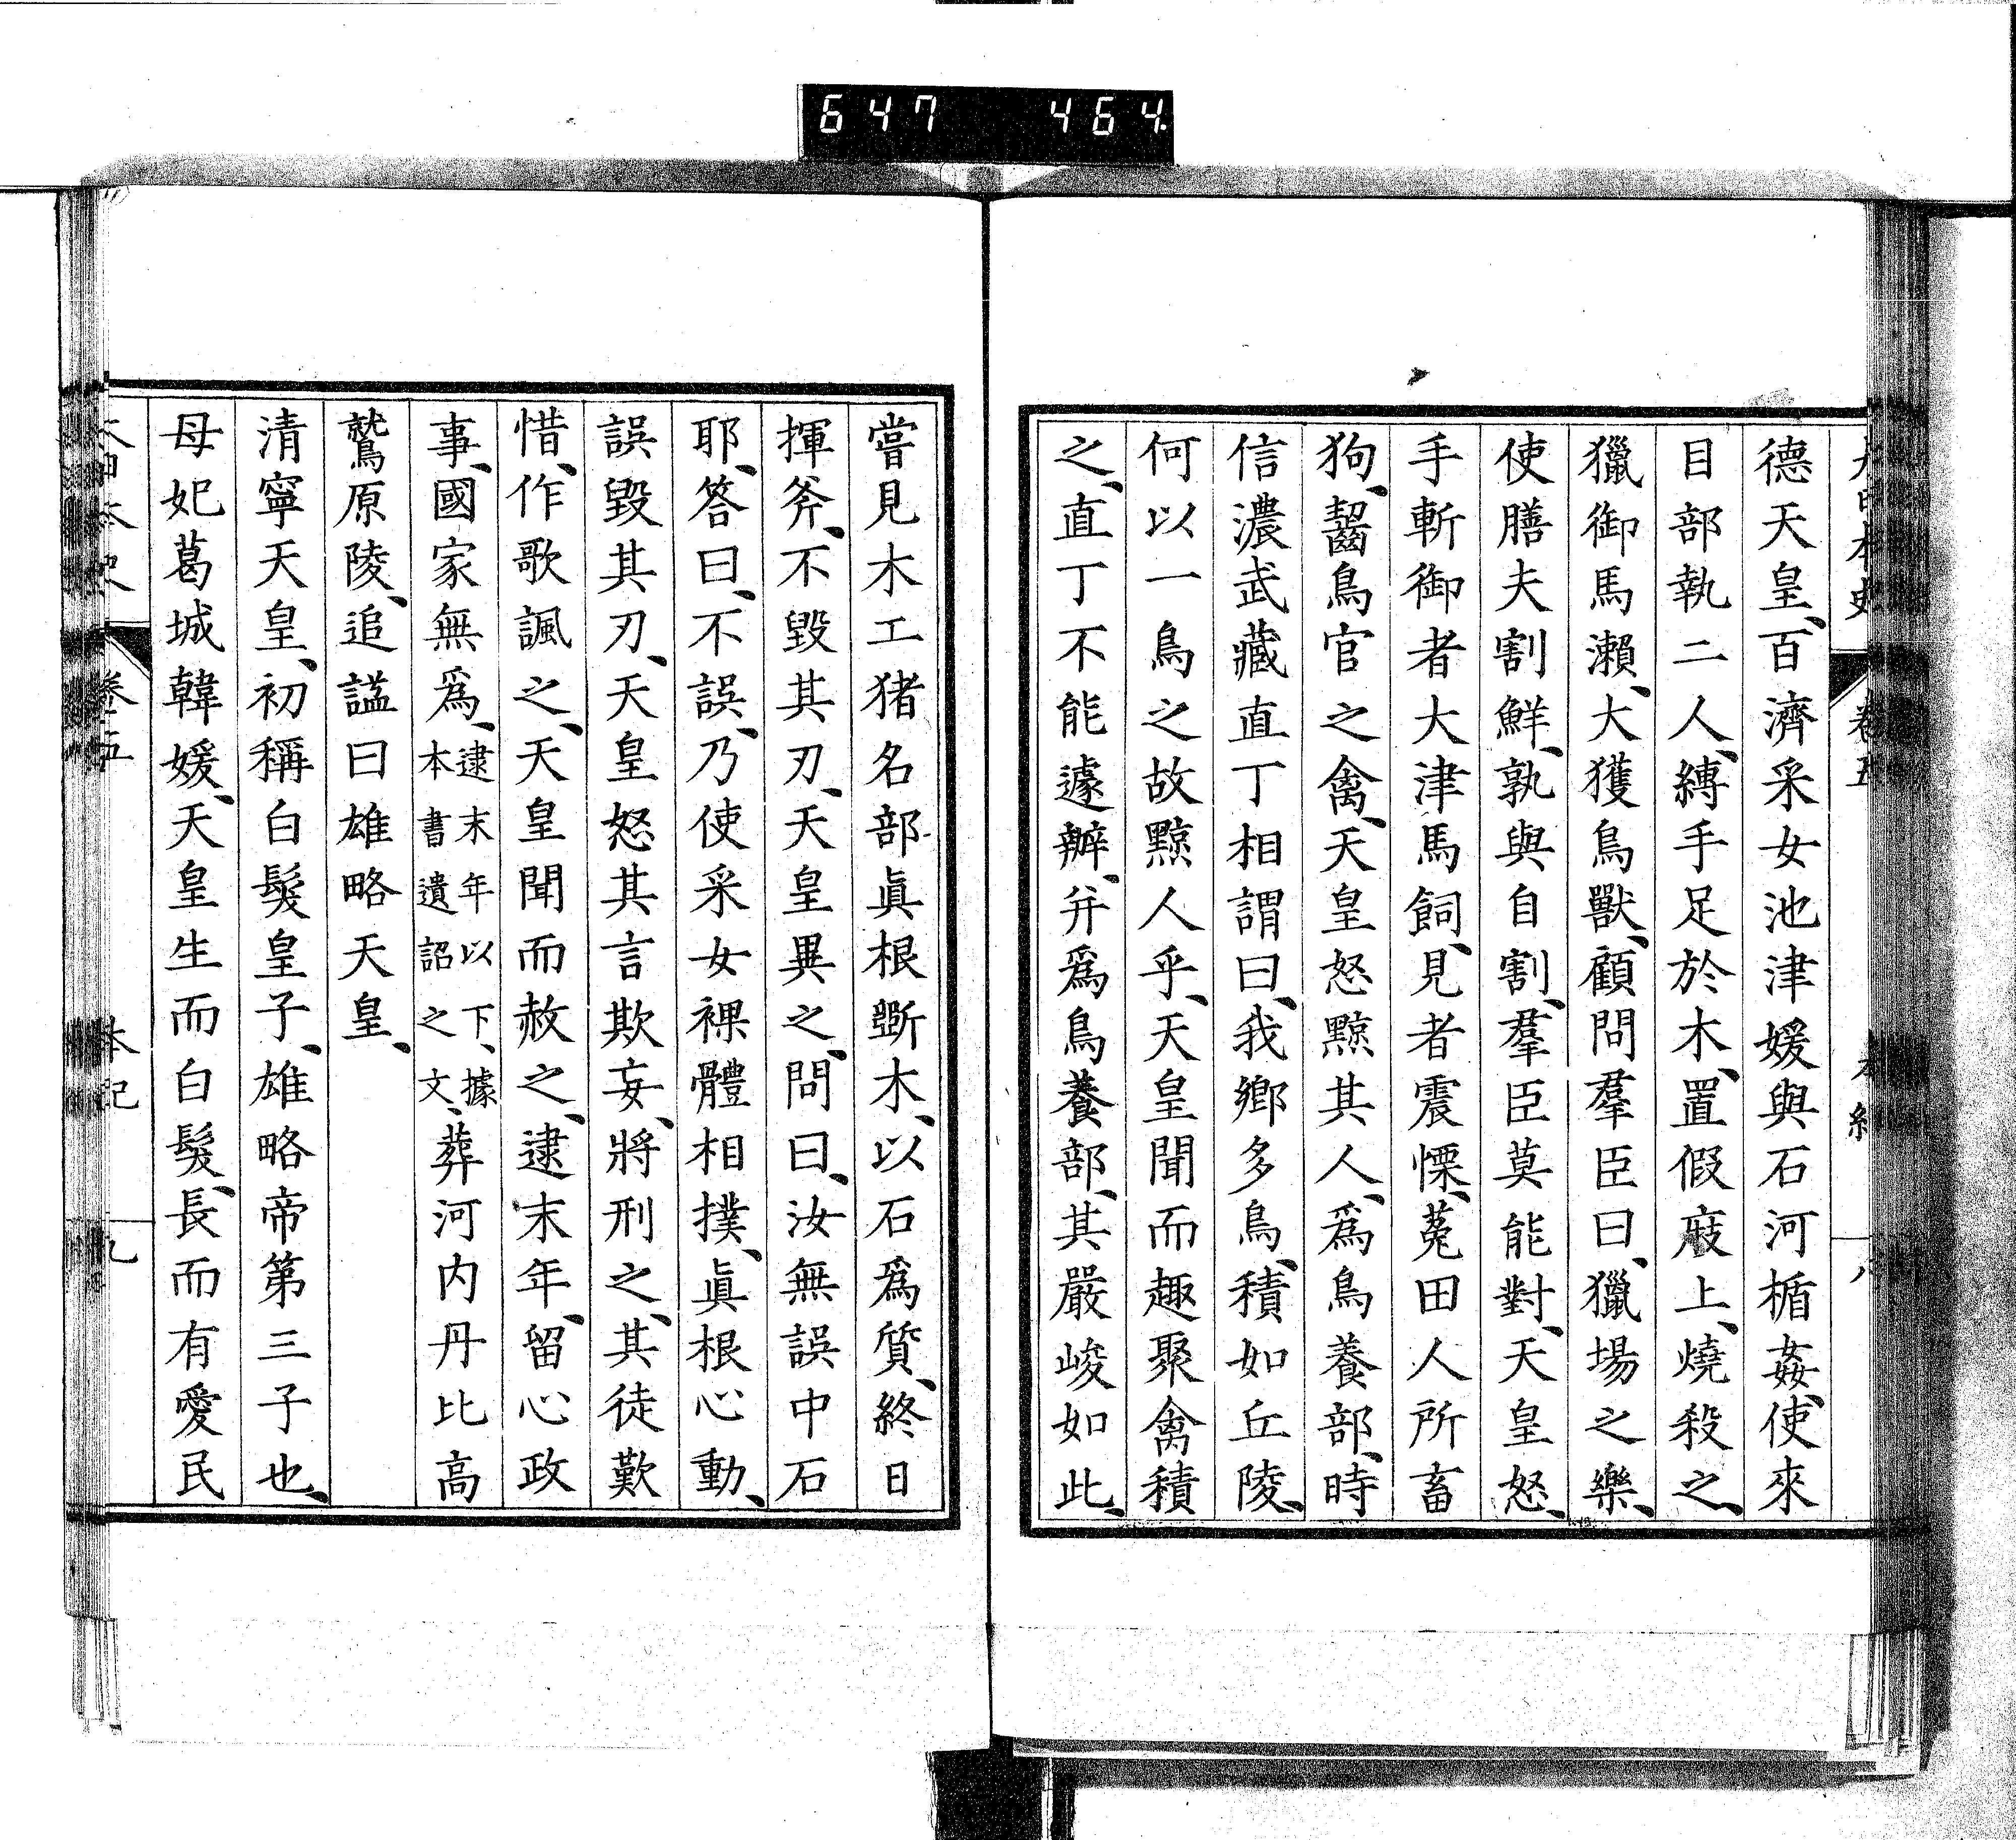 647 464
大日本史 卷五 本紀 八
德天皇、百濟采女池津媛與石河楯姦、使來
目部執二人、縛手足於木、置假庪上、燒殺之、
獵御馬瀨、大獲鳥獸、顧問羣臣曰、獵場之樂、
使膳夫割鮮、孰與自割、羣臣莫能對、天皇怒、
手斬御者大津馬飼、見者震慄、菟田人所畜
狗、齧鳥官之禽、天皇怒黥其人、爲鳥養部、時
信濃武藏直丁相謂曰、我鄉多鳥、積如丘陵、
何以一鳥之故黥人乎、天皇聞而趣聚禽積
之、直丁不能遽辦、幷爲鳥養部、其嚴峻如此、
嘗見木工猪名部眞根斲木、以石爲質、終日
揮斧、不毀其刃、天皇異之、問曰、汝無誤中石
耶、答曰、不誤、乃使采女裸體相撲、眞根心動、
誤毀其刃、天皇怒其言欺妄、將刑之、其徒歎
惜、作歌諷之、天皇聞而赦之、逮末年、留心政
事、國家無爲、逮末年以下、據本書遺詔之文、葬河内丹比高
鷲原陵、追謚曰雄略天皇、
清寧天皇、初稱白髮皇子、雄略帝第三子也、
母妃葛城韓媛、天皇生而白髮、長而有愛民
大日本史 卷五 本紀 九